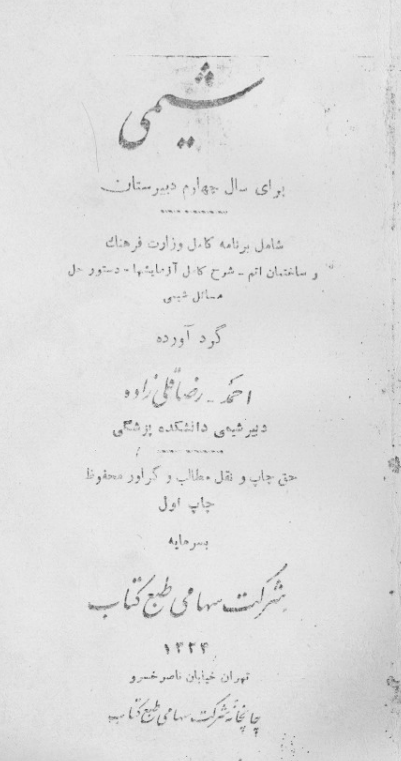 شیمی
برای سال چهارم دبیرستان
شامل برنامه کامل وزارت فرهنك
و ساختمان اتم - شرح کامل آزمایشها - دستور حل
مسائل شیمی
گرد آورده
احمد - رضاقلی زاده
دبیر شیمی دانشکده پزشکی
حق چاپ و نقل مطالب و گراور محفوظ
چاپ اول
بسرمایه
شرکت سهامی طبع کتاب
۱۳۲۴
تهران خیابان ناصر خسرو
چاپخانه شرکت سهامی طبع کتاب